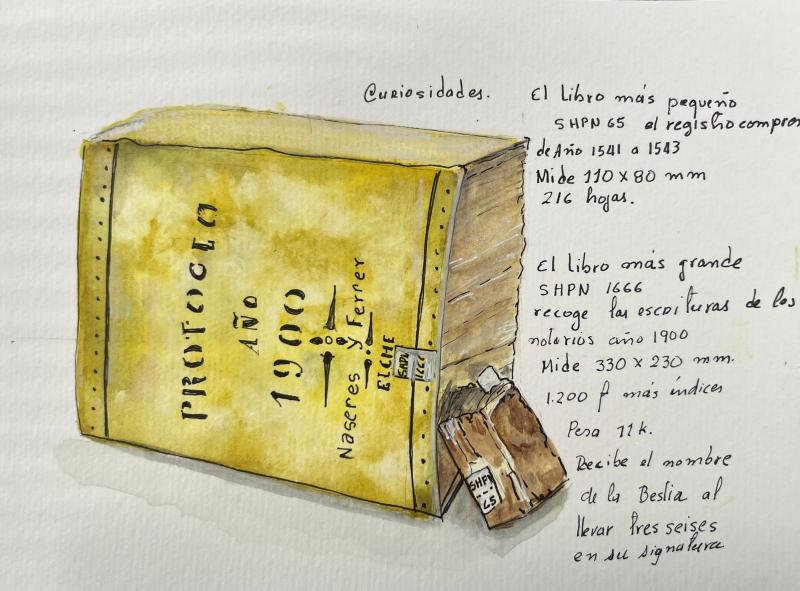 Curiosidades.
El libro más pequeño
SHPN 65 el registro
de Año 1541 a 1543
Mide 110 x 80 mm
216 hojas.
El libro más grande
SHPN 1666
recoge las escrituras de los
notarios año 1900
Mide 330 x 230 mm.
1.200 f más índices
Pesa 12 k.
Recibe el nombre
de la Bestia al
llevar tres seises
en su signatura
PROTOCLO
AÑO
1900
Naseres y Ferrer
ELCHE
SHPN
1666
SHPN
65